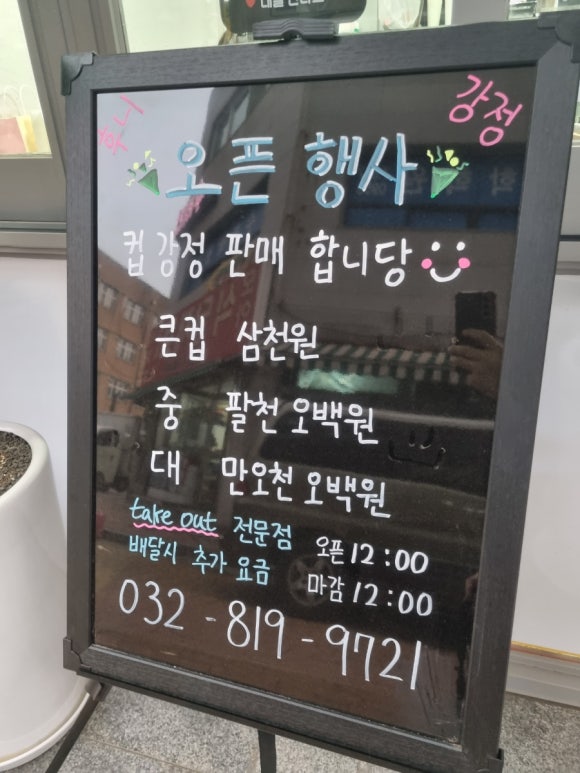 강정
오픈 행사
컵강정 판매 합니당
큰컵 삼천원
중 팔천 오백원
대 만오천 오백원
take out 전문점
배달시 추가 요금
오픈 12:00
마감 12:00
032-819-9721